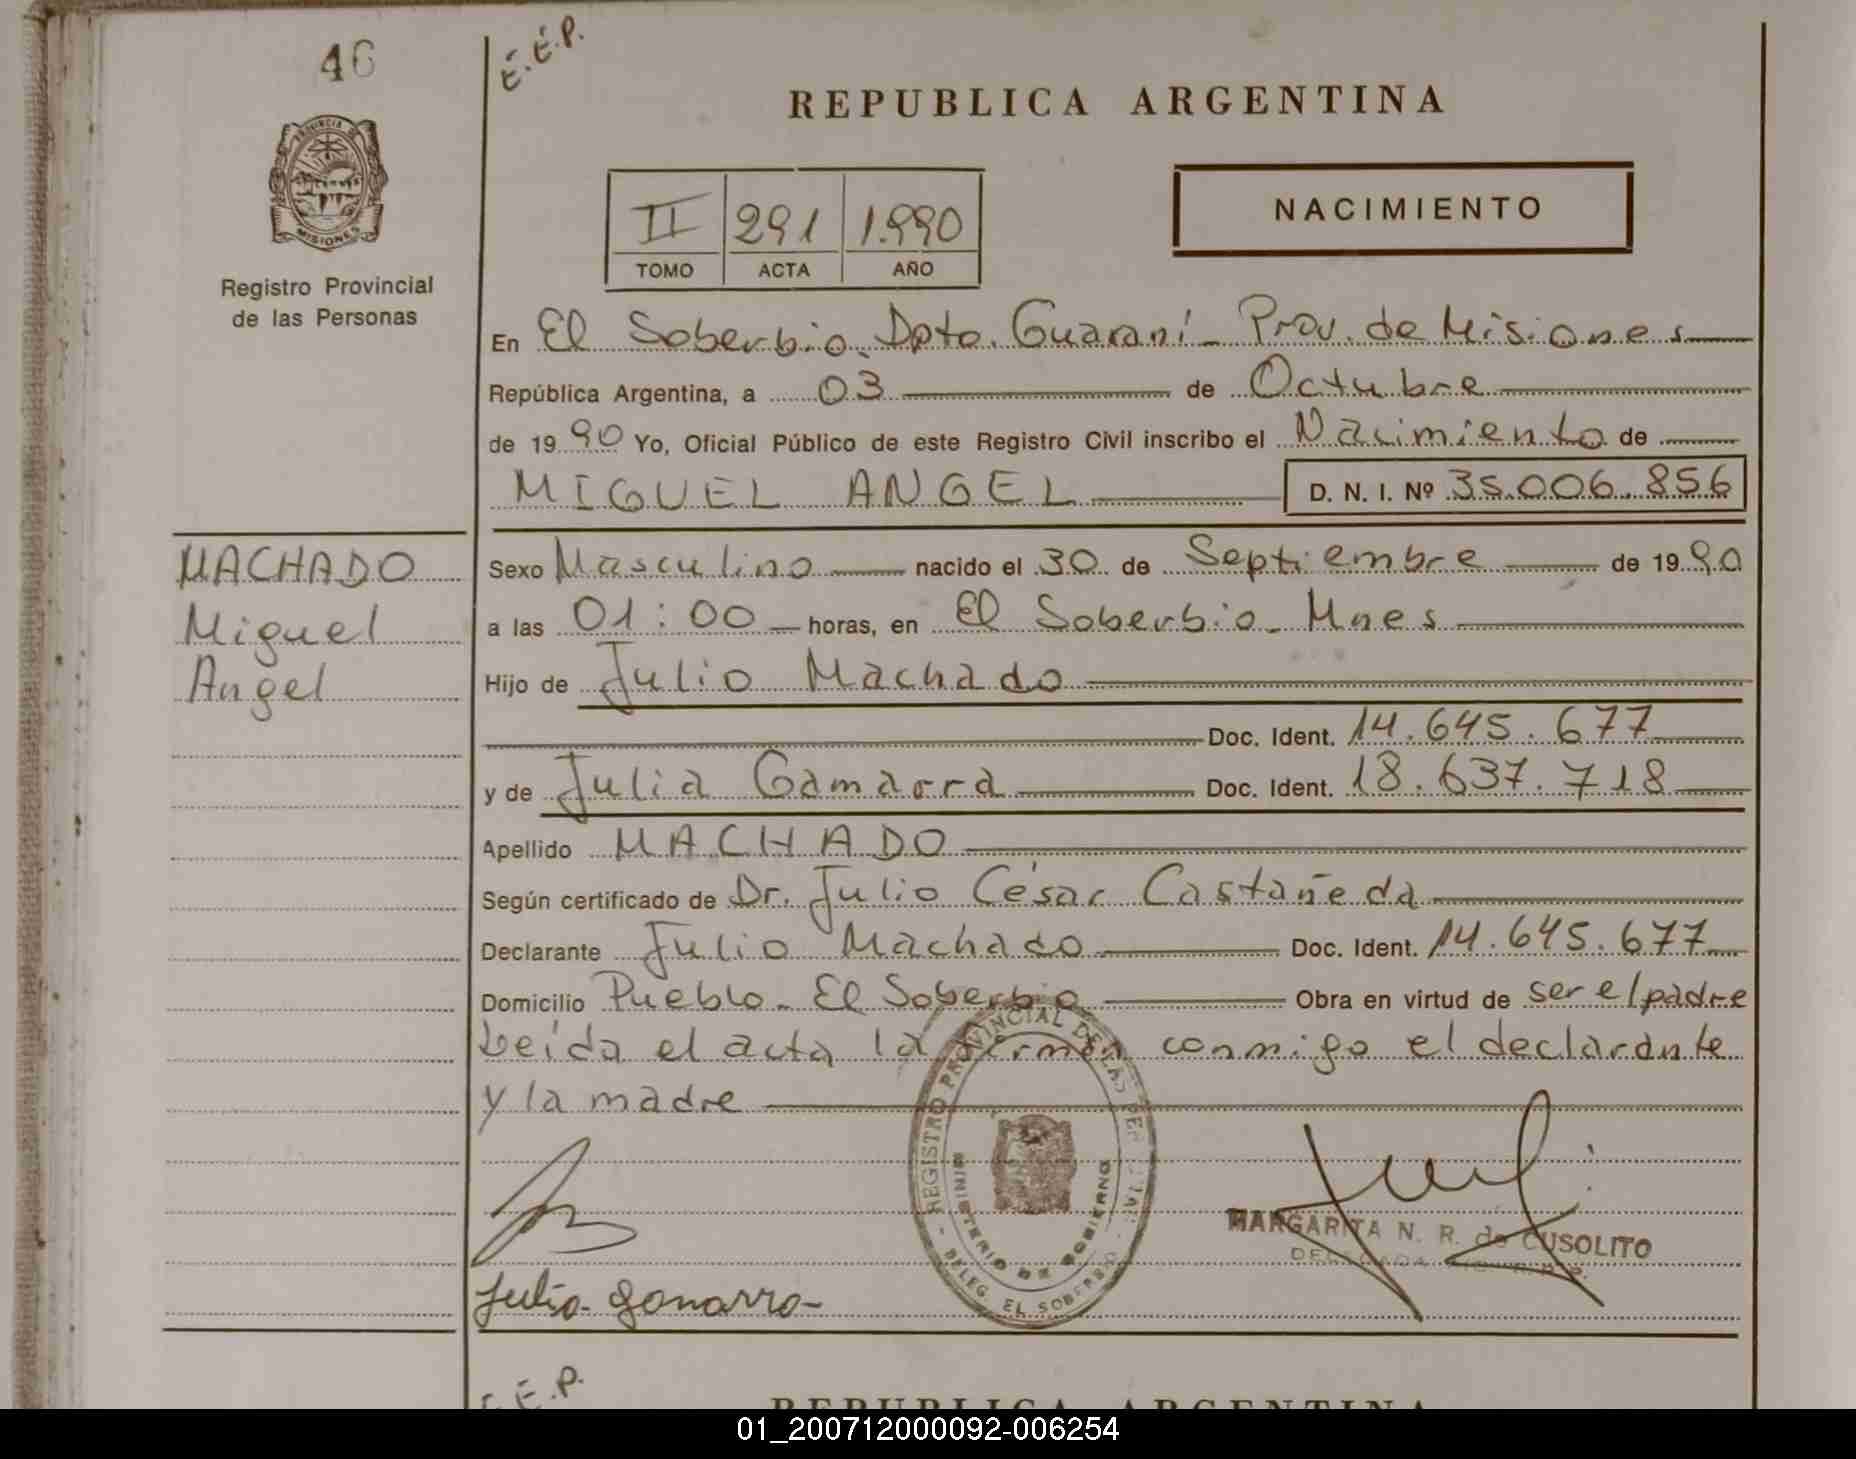 46
E.E.P.
REPUBLICA ARGENTINA
PROVINCIA DE
MISIONES
Registro Provincial
de las Personas
II 291 1.990
TOMO ACTA AÑO
NACIMIENTO
En El Soberbio. Dpto. Guaraní - Prov. de Misiones
República Argentina, a 03 de Octubre
de 1990 Yo, Oficial Público de este Registro Civil inscribo el Nacimiento de
MIGUEL ANGEL D. N. I. Nº 35.006.856
MACHADO
Miguel
Angel
Sexo Masculino nacido el 30 de Septiembre de 1990
a las 01:00 horas, en El Soberbio - Mnes
Hijo de Julio Machado
Doc. Ident. 14.645.677
y de Julia Gamarra Doc. Ident. 18.637.718
Apellido MACHADO
Según certificado de Dr. Julio César Castañeda
Declarante Julio Machado Doc. Ident. 14.645.677
Domicilio Pueblo - El Soberbio Obra en virtud de ser el padre
Leída el acta la firman conmigo el declarante
y la madre
REGISTRO PROVINCIAL DE LAS PERSONAS
MINISTERIO DE GOBIERNO
DELEG. EL SOBERBIO
MARGARITA N. R. de CUSOLITO
DELEGADA
Julia Gamarra
E.E.P.
REPUBLICA ARGENTINA
01_200712000092-006254